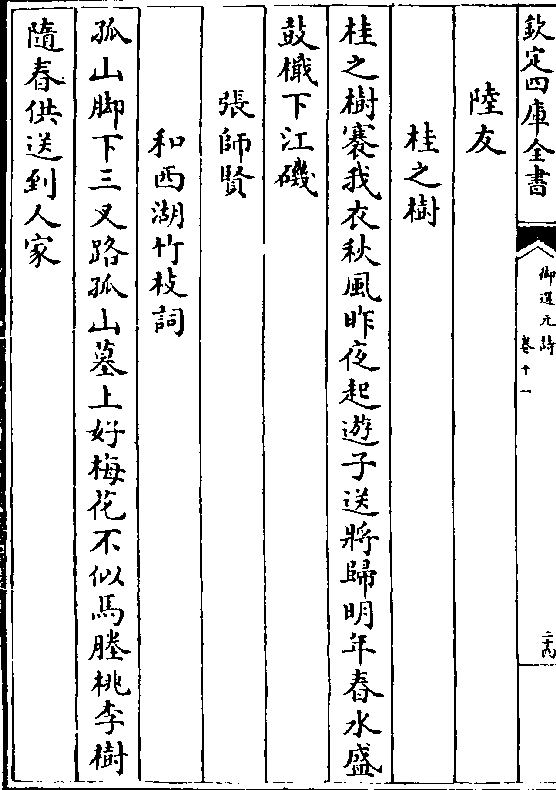 欽定四庫全書
御選元詩
卷十一
陸友
桂之樹
桂之樹褰我衣秋風昨夜起遊子送將歸明年春水盛
鼓檝下江磯
張師賢
和西湖竹枝詞
孤山脚下三叉路孤山墓上好梅花不似馬塍桃李樹
隨春供送到人家